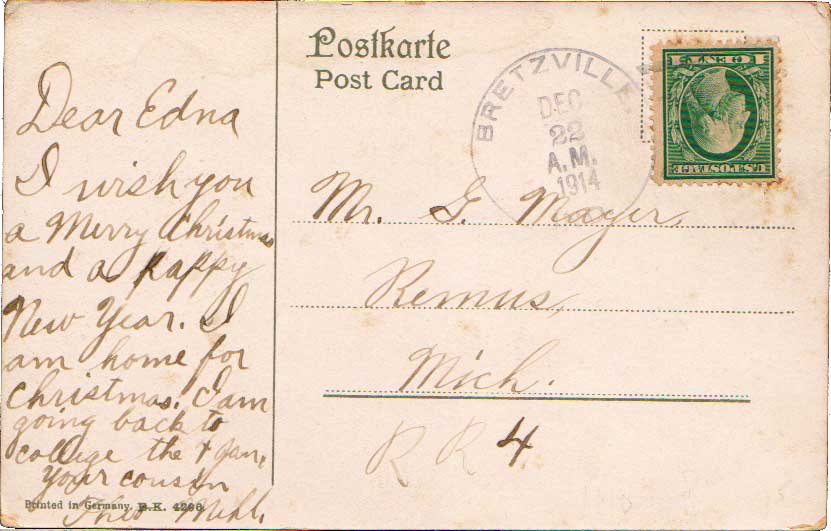 Postkarte
Post Card
BRETZVILLE
DEC
22
A.M.
1914
1 CENT 1
U.S. POSTAGE
Dear Edna
I wish you
a Merry Christmas
and a happy
New Year. I
am home for
Christmas. I am
going back to
college the 4 Jan.
Your cousin
Theo
Mr. G. Mayer,
Remus,
Mich.
R R 4
Printed in Germany. B.K. 4296